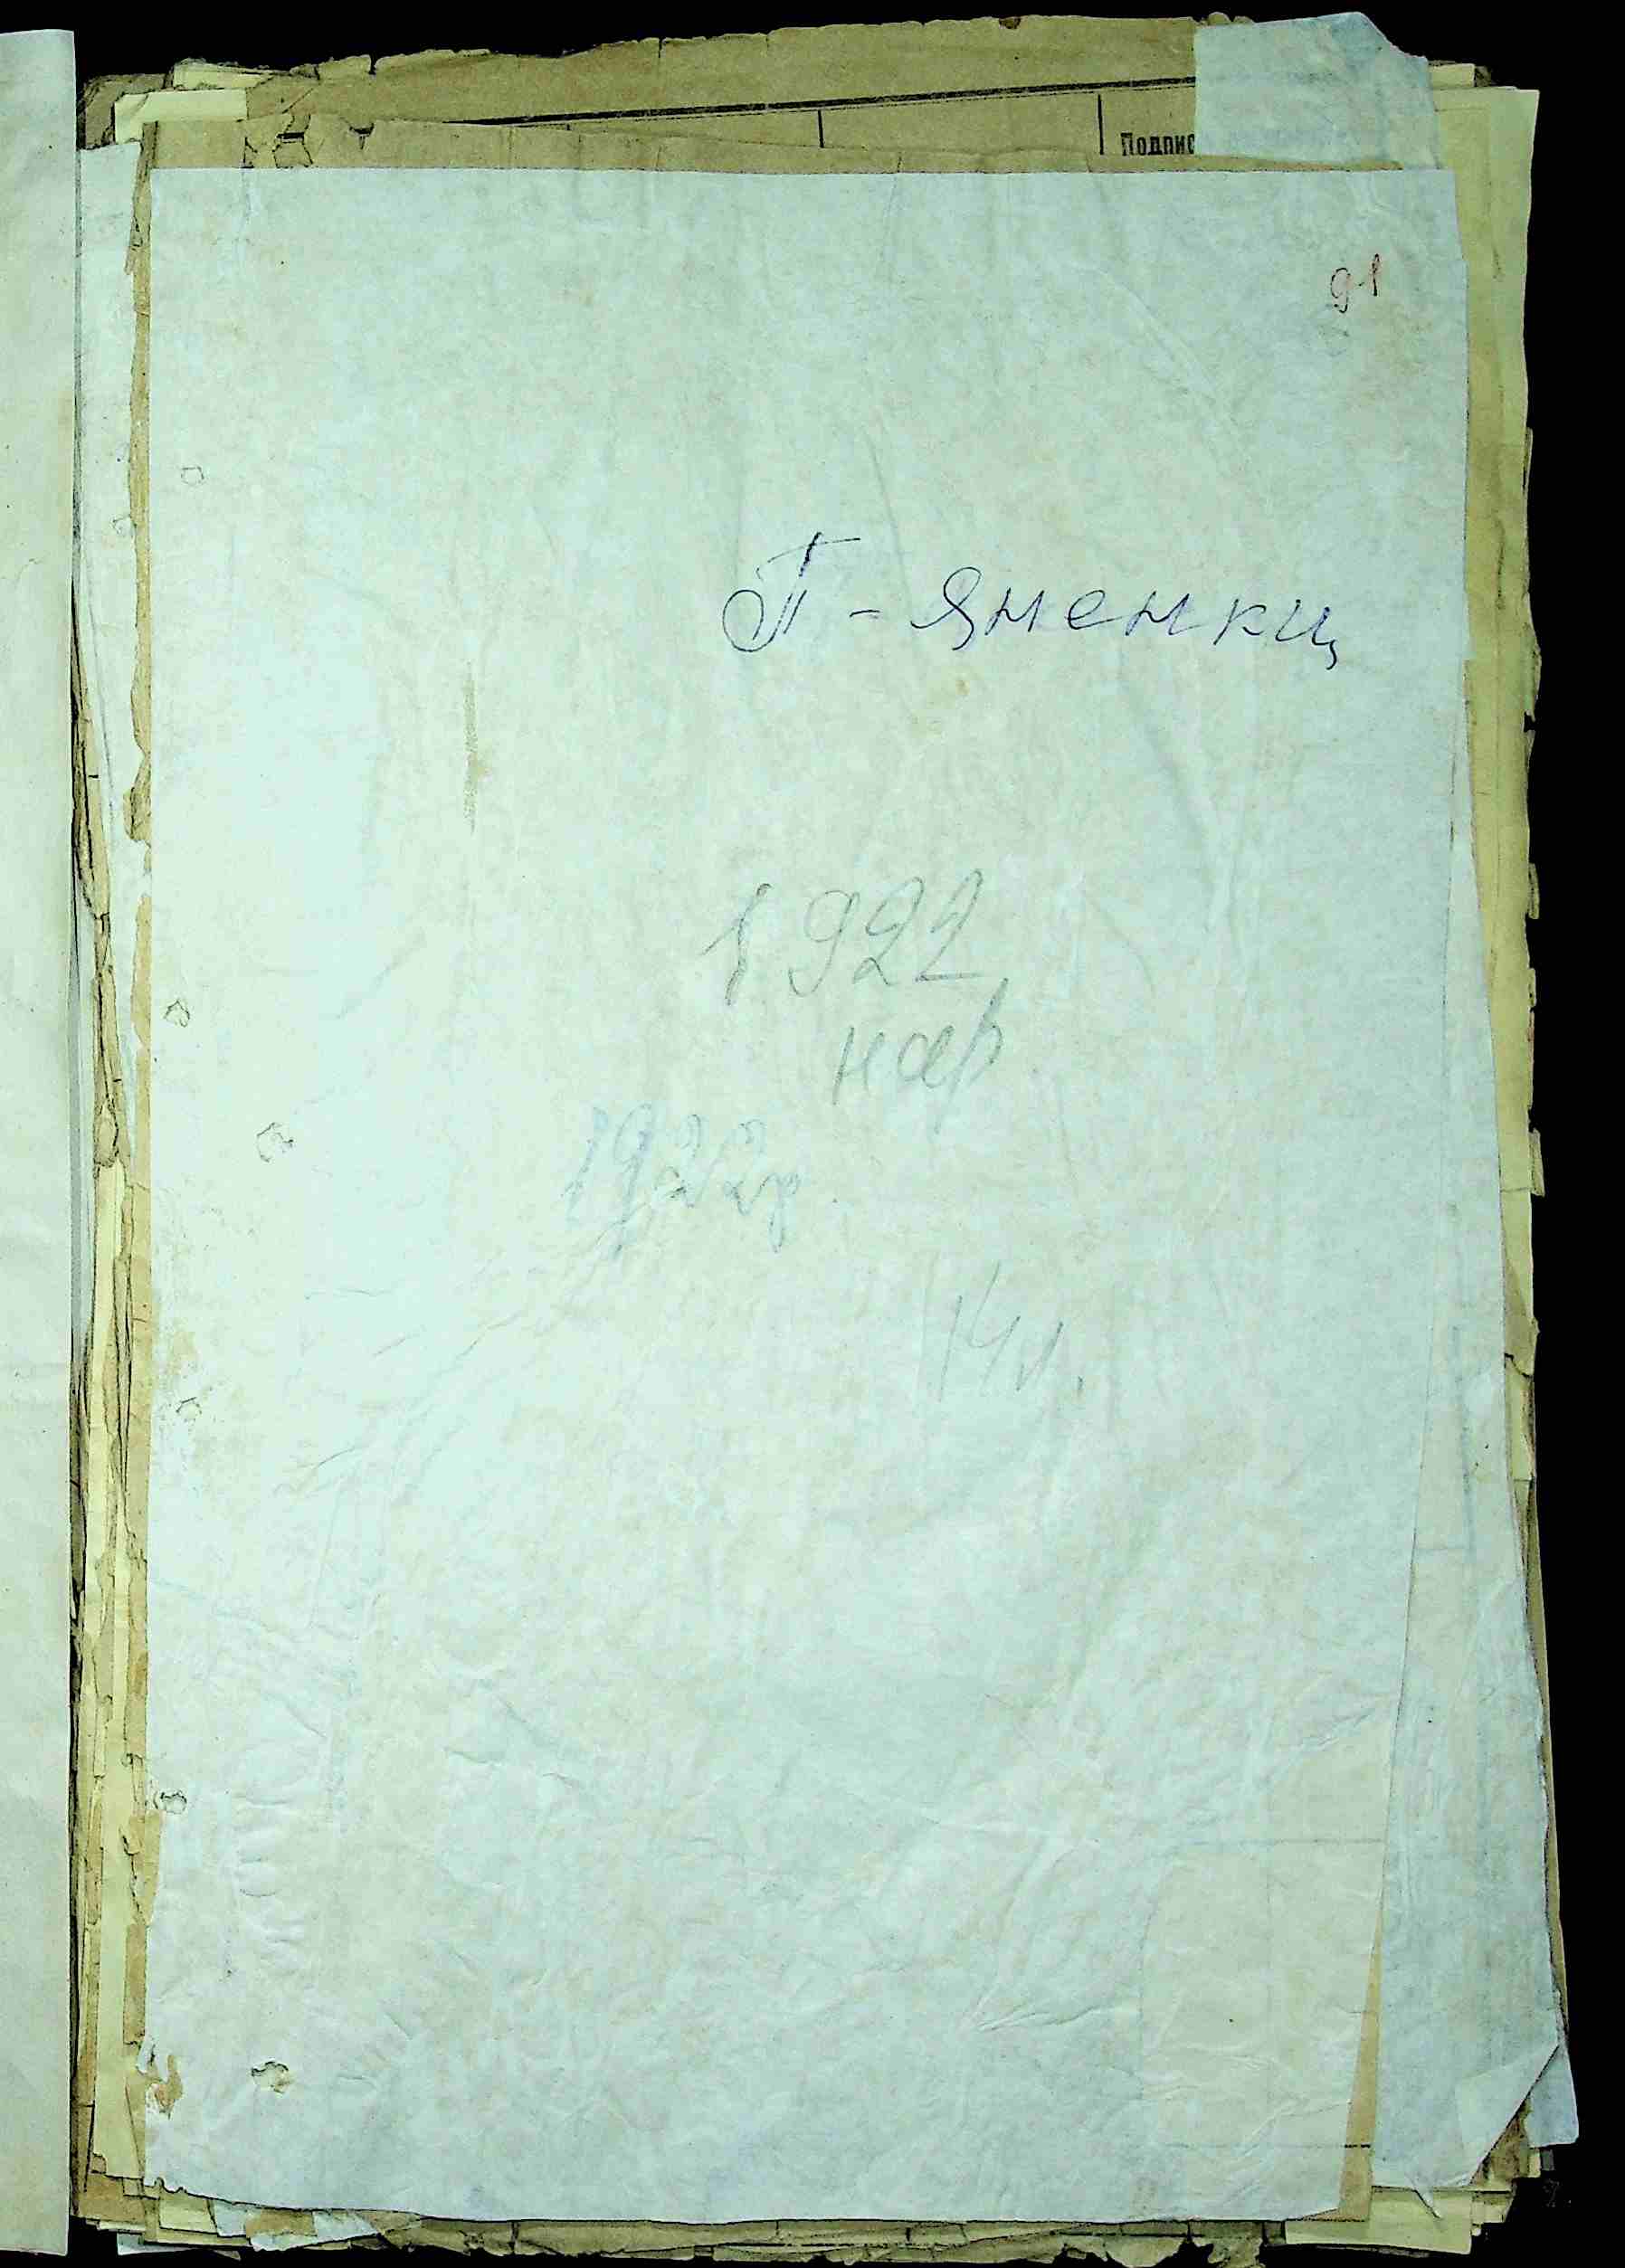 Подпис
91
П - Яненки
1922
нар
1922р.
14л.